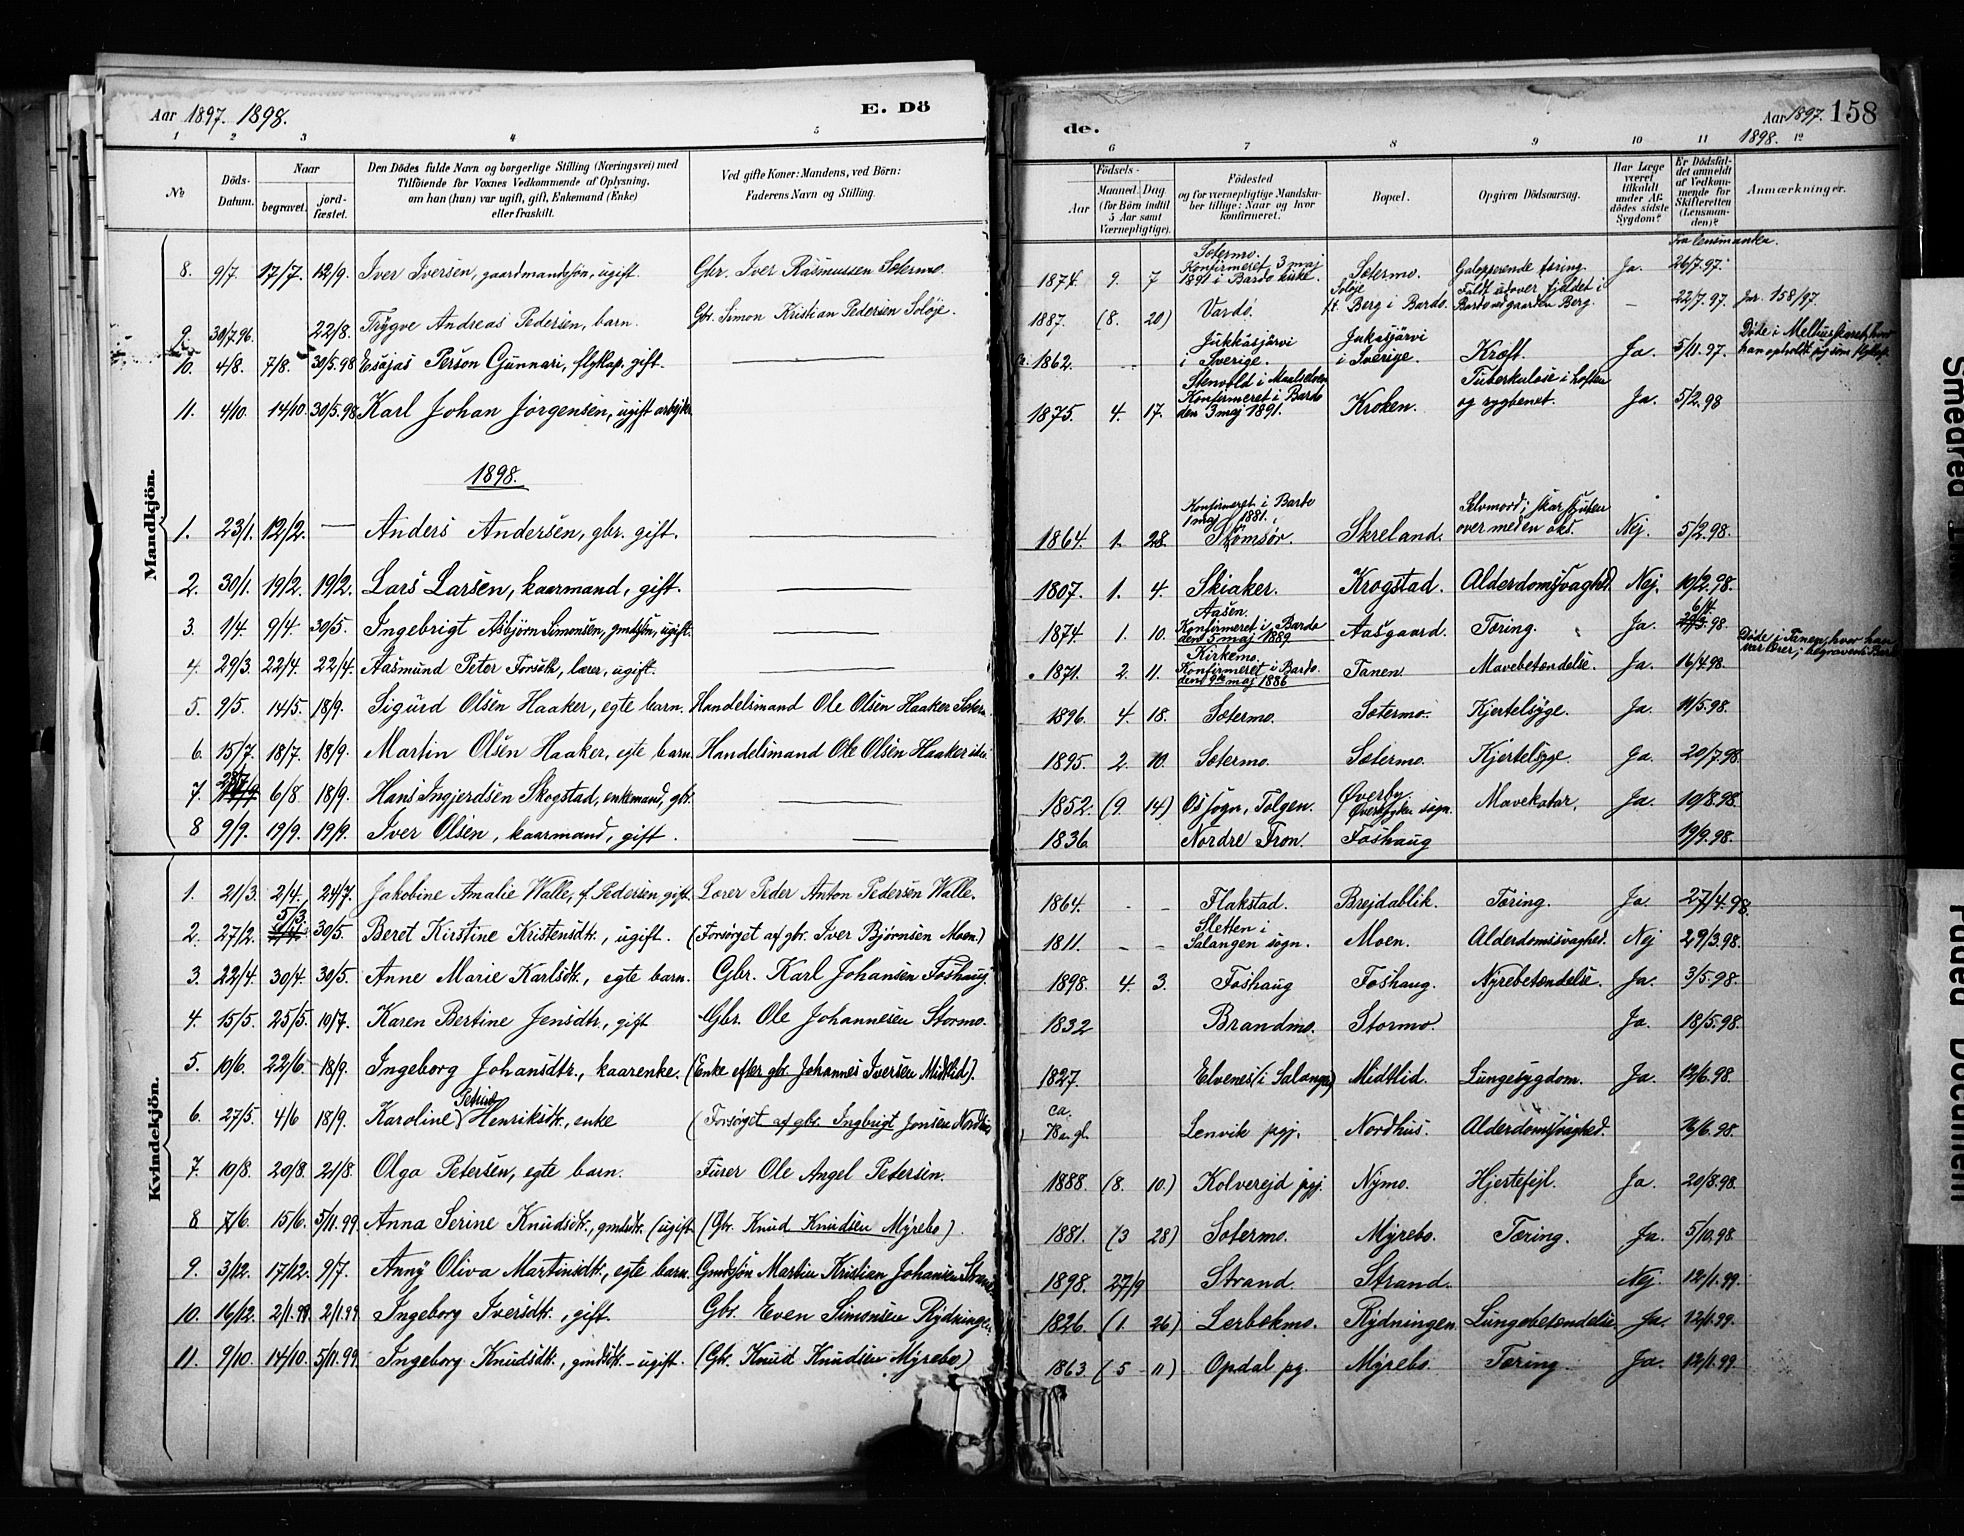 Aar 1897. 1898.
E. Dö
de.
Aar 1897. 158
1898.
1 2 3 4 5
6 7 8 9 10 11 12
No
Döds-Datum.
Naar
begravet.
jord-fæstet.
Den Dödes fulde Navn og borgerlige Stilling (Næringsvei) med
Tilföiende for Voxnes Vedkommende af Oplysning,
om han (hun) var ugift, gift, Enkemand (Enke)
eller fraskilt.
Ved gifte Koner: Mandens, ved Börn:
Faderens Navn og Stilling.
Födsels-
Aar
Maaned. Dag
(for Börn indtil
5 Aar samt
Værnepligtige).
Födested
og for værnepligtige Mandska-
ber tillige: Naar og hvor
konfirmeret.
Bopæl.
Opgiven Dödsaarsag.
Har Læge
været
tilkaldt
under Af-
dödes sidste
Sygdom?
Er Dödsfal-
det anmeldt
af Vedkom-
mende for
Skifteretten
(Lensman-
den)?
Anmærkninger.
Mandkjön.
fra lensmanden.
8. 9/7. 17/7. 12/9. Iver Iversen, gaardmandssøn, ugift. Gbr. Iver Rasmussen Sætermo. 1874. 9. 7 Sætermo. Konfirmeret 3 maj 1891 i Bardo kirke. Sætermo. Galopperende tæring. Ja. 26/7.97.
9. 30/7.96. 22/8. Trygve Andreas Pedersen, barn. Gbr. Simon Kristian Pedersen Soløje. 1887. (8. 20) Vardø. Soløje Berg i Bardo. Faldt udover fjeldet i Bardo udgaarden Berg. — 22/7.97. Jnr. 158/97.
10. 4/8. 7/8. 30/5.98 Esajas Person Gunnari, flytlap. gift. — 1862. Jukkasjärvi i Sverige. Jukasjärvi i Sverige. Kræft. Ja. 5/11.97. Døde i Melhuskaret, hvor han opholdt sig som flytlap.
11. 4/10. 14/10. 30/5.98. Karl Johan Jørgensen, ugift arbejder 1875. 4. 17. Stenvold i Maalselven Konfirmeret i Bardo den 3 maj 1891. Kroken. Tuberkulose i hoften og rygbenet. Ja. 5/2.98
1898.
1. 23/1. 12/2. — Anders Andersen, gbr. gift. — 1864. 1. 28. Konfirmeret i Bardo 1 maj 1881. Skreland. Selvmord; skar strupen over med en økd. Nej. 5/2.98.
2. 30/1. 19/2. 19/2. Lars Larsen, kaarmand, gift. — 1807. 1. 4. Skiaker. Krogstad. Alderdomssvaghed. Nej. 10/2.98.
3. 1/4. 9/4. 30/5. Ingebrigt Asbjørn Simonsen, gmdssøn, ugift. — 1874. 1. 10. Aasen. Konfirmeret i Bardo den 5 maj 1889 Aasgaard. Tæring. Ja. 6/4. 98.
4. 29/3. 22/4. 22/4. Aasmund Peter Forseth, lærer, ugift. — 1871. 2. 11. Kirkemo. Konfirmeret i Bardo den 9de maj 1886 Tanen. Mavebetændelse. Ja. 16/4.98. Døde i Tanen, hvor han var lærer; begravet i Bardo
5. 9/5. 14/5. 18/9. Sigurd Olsen Haaker, egte barn. Handelsmand Ole Olsen Haaker Sæterm. 1896. 4. 18. Sætermo. Sætermo. Kjertelsyge. Ja. 11/5.98.
6. 15/7. 18/7. 18/9. Martin Olsen Haaker, egte barn. Handelsmand Ole Olsen Haaker 1895. 2. 10. Sætermo. Sætermo. Kjertelsyge. Ja. 20/7.98.
7. 28/7 6/8 18/9. Hans Ingjerdsen Skogstad, enkemand, gbr. — 1852. (9. 14) Os sogn, Tolgen. Øverby. Øverbygden sogn. Mavekatar. Ja. 10/8.98.
8 9/9. 19/9. 19/9. Iver Olsen, kaarmand, gift. — 1836. Nordre Fron. Foshaug 19/9.98.
Kvindekjön.
1. 21/3. 2/4. 24/7. Jakobine Amalie Walle, f. Pedersen, gift. Lærer Peder Anton Pedersen Walle. 1864. - - Flakstad. Brejdablik. Tæring. Ja. 27/4.98.
2. 27/2. 5/3. 30/5. Beret Kirstine Kristensdtr., ugift. (Forsørget af gbr. Iver Bjørnsen Moen.) 1811. - - Sletten i Salangen sogn. Moen. Alderdomssvaghed. Nej 29/3.98.
3. 22/4. 30/4. 30/5. Anne Marie Karlsdtr., egte barn. Gbr. Karl Johansen Foshaug. 1898. 4. 3. Foshaug Foshaug. Nyrebetændelse. Ja. 3/5.98.
4. 15/5. 25/5. 10/7. Karen Bertine Jensdtr, gift Gbr. Ole Johannesen Stormo. 1832 Brandmo. Stormo. Ja. 18/5.98.
5. 10/6. 22/6. 18/9. Ingeborg Johansdtr., kaarenke. (Enke efter gbr. Johannes Iversen Midtlid). 1827. Elvenes (i Salangen) Midtlid. Lungesygdom. Ja. 12/6.98.
6. 27/5. 4/6 18/9. Karoline Henriksdtr., enke (Forsørget af gbr. Ingebrigt Jonsen Nordhus ca. 78 a. gl. Lenvik pgj. Nordhus. Alderdomssvaghed. 98.
7. 10/8. 20/8. 21/8. Olga Petersen, egte barn. Furer Ole Angel Petersen. 1888. (8. 10.) Kolverejd pgj. Nymo. Hjertefejl. Ja. 20/8.98.
8 7/6. 15/6. 5/11.99. Anna Serine Knudsdtr., gmdsdtr. (ugift. (Gbr. Knud Knudsen Myrebo). 1881. (3 28) Sætermo. Myrebo. Tæring. Ja. 5/10.98.
9. 3/12. 17/12. 9/7. Anny Oliva Martinsdtr., egte barn. Gmdssøn Martin Kristian Johansen Strand 1898. 27/9 Strand. Strand. Nej. 12/1.99.
10. 16/12. 2/1.99. 2/1.99 Ingeborg Iversdtr., gift. Gbr. Even Simonsen Rydningen. 1826. (1. 26) Lerbekmo. Rydningen. Lungebetændelse. Ja. 12/1.99.
11. 9/10. 14/10. 5/11.99. Ingeborg Knudsdtr., gmdsdtr. - ugift. (Gbr. Knud Knudsen Myrebo) 1863. (5 11) Opdal pg. Myrebo. Tæring. Ja. 12/1.99.
Faded Document